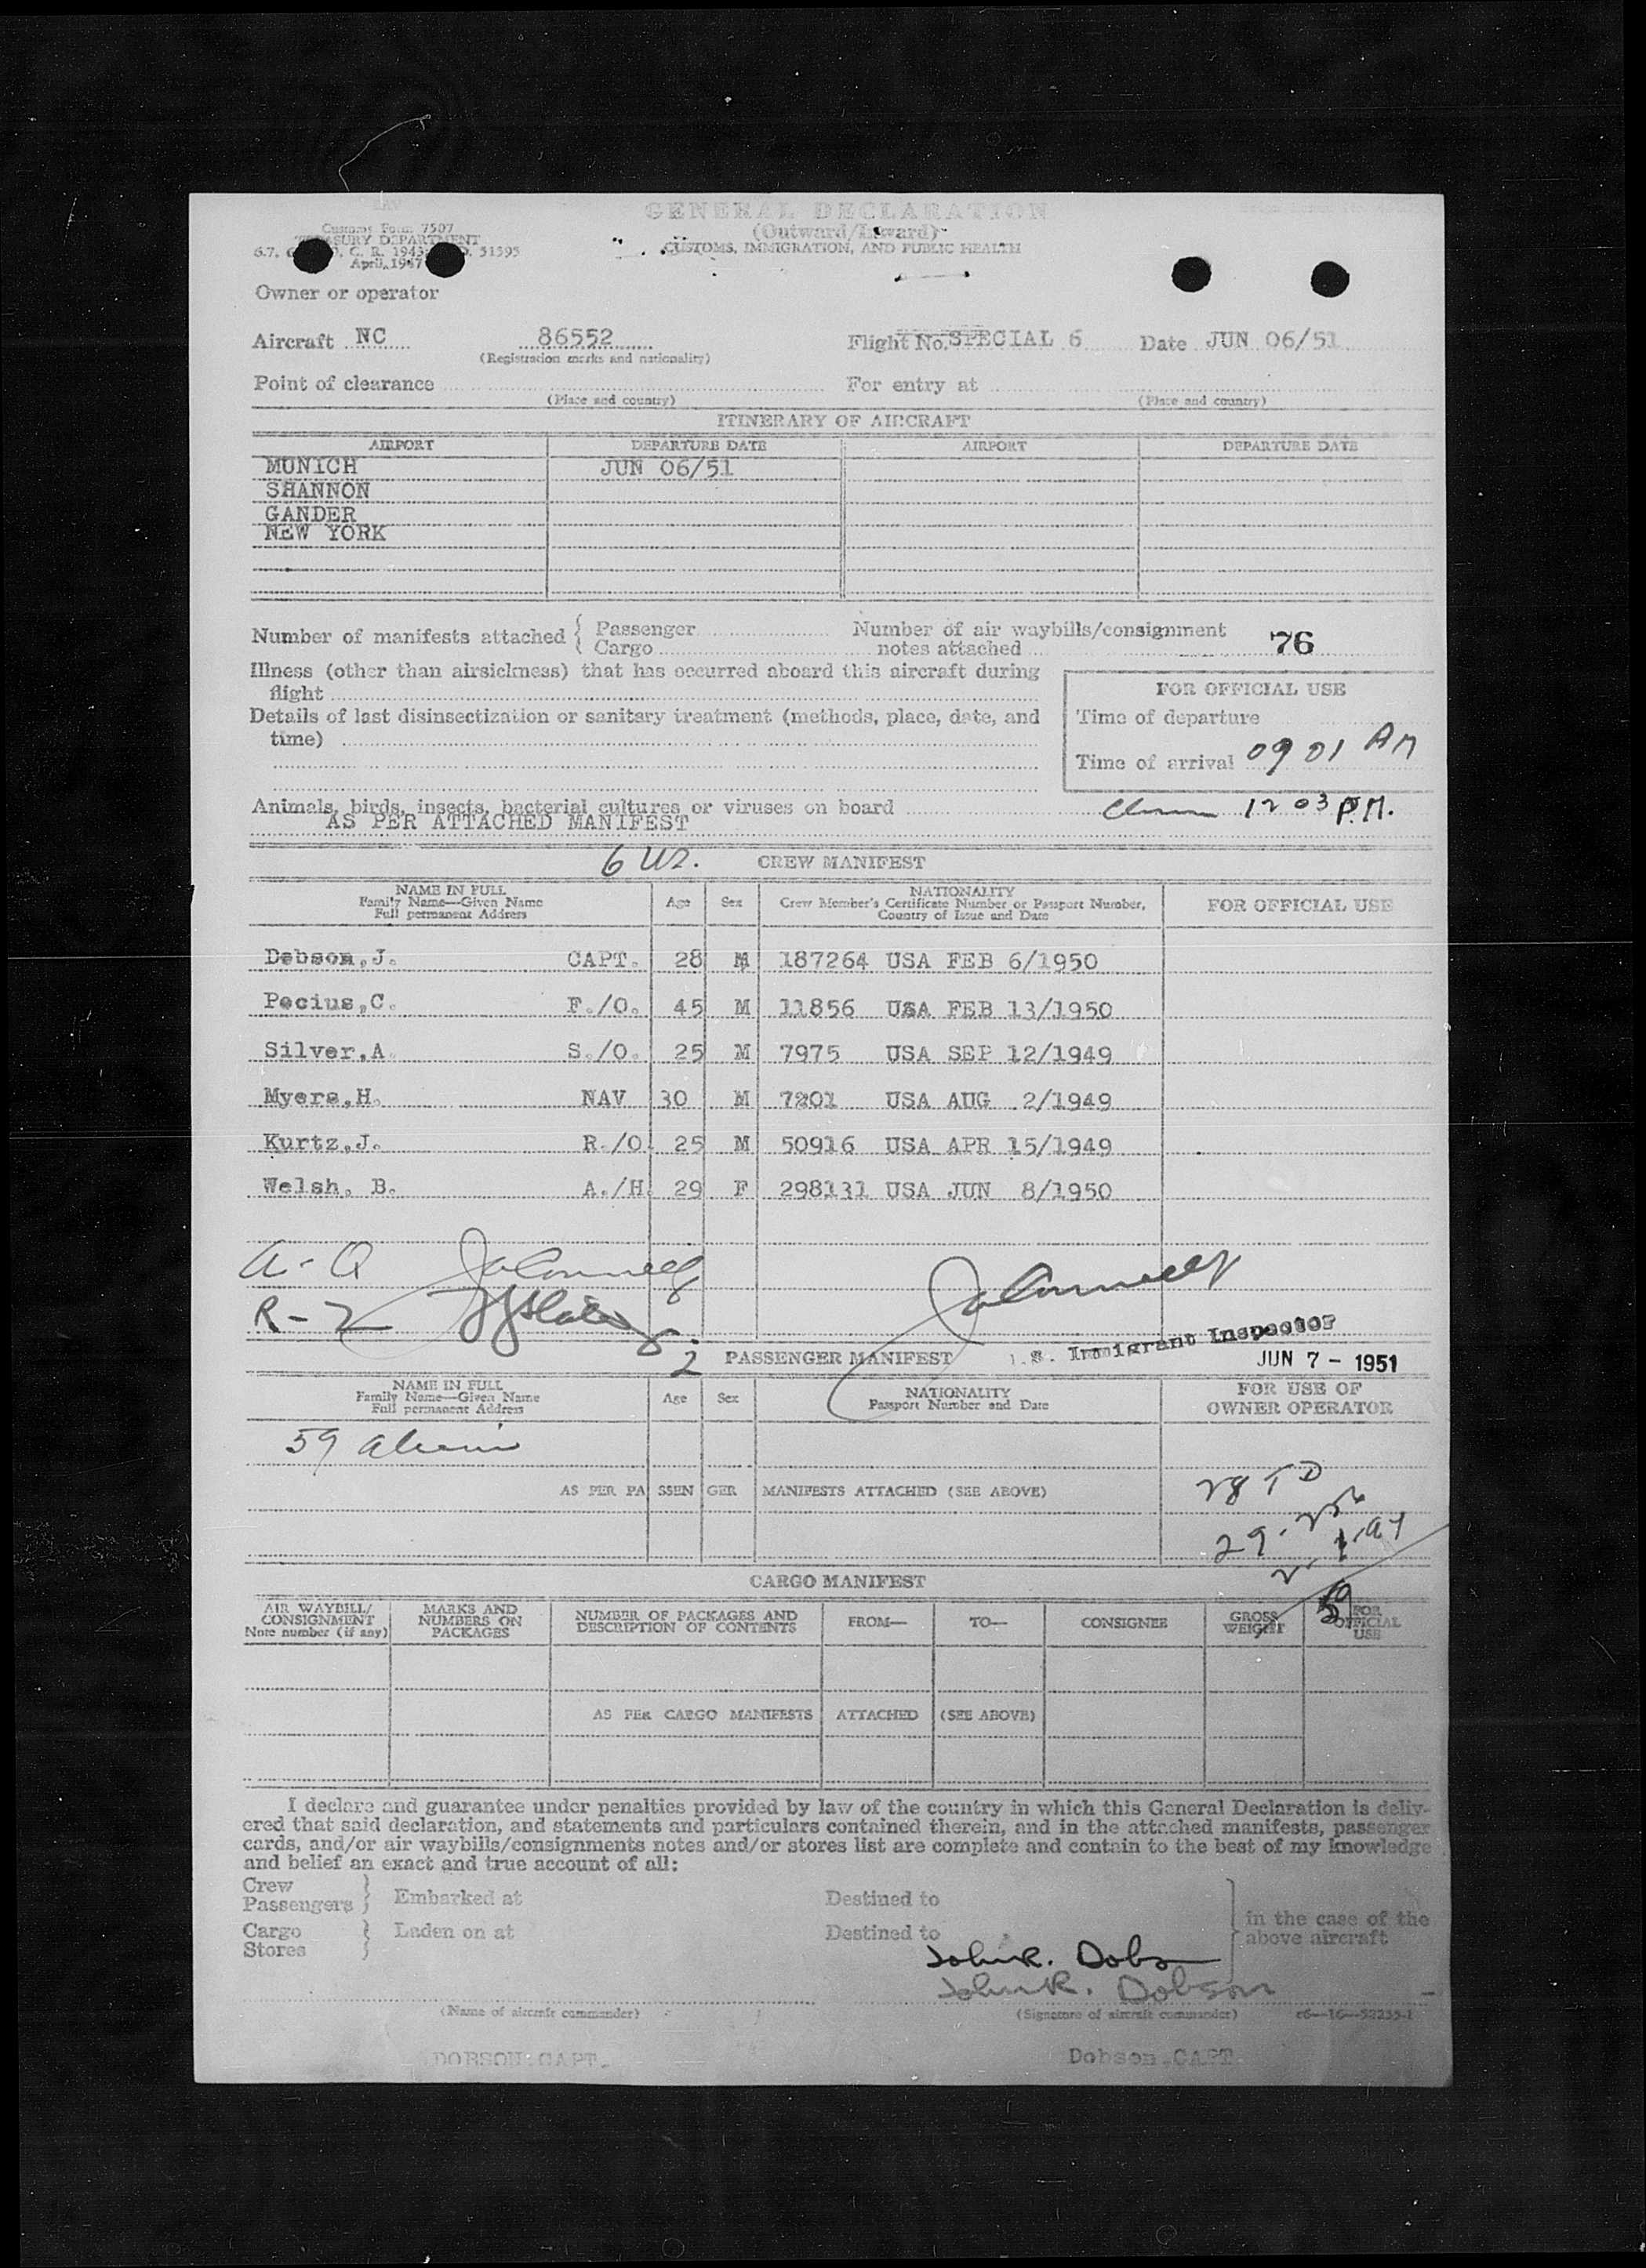 GENERAL DECLARATION
(Outward/Inward)
CUSTOMS, IMMIGRATION, AND PUBLIC HEALTH
Customs Form 7507
TREASURY DEPARTMENT
C. R. 1943 51595
April, 1947
Owner or operator
Aircraft NC 86552 Flight No. SPECIAL 6 Date JUN 06/51
(Registration marks and nationality)
Point of clearance For entry at
(Place and country) (Place and country)
ITINERARY OF AIRCRAFT
AIRPORT DEPARTURE DATE AIRPORT DEPARTURE DATE
MUNICH JUN 06/51
SHANNON
GANDER
NEW YORK
Number of manifests attached { Passenger Number of air waybills/consignment
Cargo notes attached 76
Illness (other than airsickness) that has occurred aboard this aircraft during
flight
FOR OFFICIAL USE
Details of last disinsectization or sanitary treatment (methods, place, date, and
time)
Time of departure
Time of arrival 09 01 AM
Animals, birds, insects, bacterial cultures or viruses on board
12 03 P.M.
AS PER ATTACHED MANIFEST
6 US. CREW MANIFEST
NAME IN FULL
Family Name—Given Name
Full permanent Address
Age Sex
NATIONALITY
Crew Member's Certificate Number or Passport Number,
Country of Issue and Date
FOR OFFICIAL USE
Dobson,J. CAPT. 28 M 187264 USA FEB 6/1950
Pecius,C. F./O. 45 M 11856 USA FEB 13/1950
Silver,A. S./O. 25 M 7975 USA SEP 12/1949
Myers,H. NAV 30 M 7201 USA AUG 2/1949
Kurtz,J. R./O. 25 M 50916 USA APR 15/1949
Welsh, B. A./H. 29 F 298131 USA JUN 8/1950
R-2
U.S. Immigrant Inspector
2 PASSENGER MANIFEST JUN 7 - 1951
NAME IN FULL
Family Name—Given Name
Full permanent Address
Age Sex
NATIONALITY
Passport Number and Date
FOR USE OF
OWNER OPERATOR
59 Aliens
28 TD
AS PER PASSENGER MANIFESTS ATTACHED (SEE ABOVE)
29
59
CARGO MANIFEST
AIR WAYBILL/
CONSIGNMENT
Note number (if any)
MARKS AND
NUMBERS ON
PACKAGES
NUMBER OF PACKAGES AND
DESCRIPTION OF CONTENTS
FROM— TO— CONSIGNEE
GROSS
WEIGHT
FOR
OFFICIAL
USE
AS PER CARGO MANIFESTS ATTACHED (SEE ABOVE)
I declare and guarantee under penalties provided by law of the country in which this General Declaration is deliv-
ered that said declaration, and statements and particulars contained therein, and in the attached manifests, passenger
cards, and/or air waybills/consignments notes and/or stores list are complete and contain to the best of my knowledge
and belief an exact and true account of all:
Crew
Passengers } Embarked at Destined to
Cargo
Stores } Laden on at Destined to
in the case of the
above aircraft
John R. Dobson
John R. Dobson
(Name of aircraft commander) (Signature of aircraft commander)
DOBSON.CAPT. Dobson.CAPT